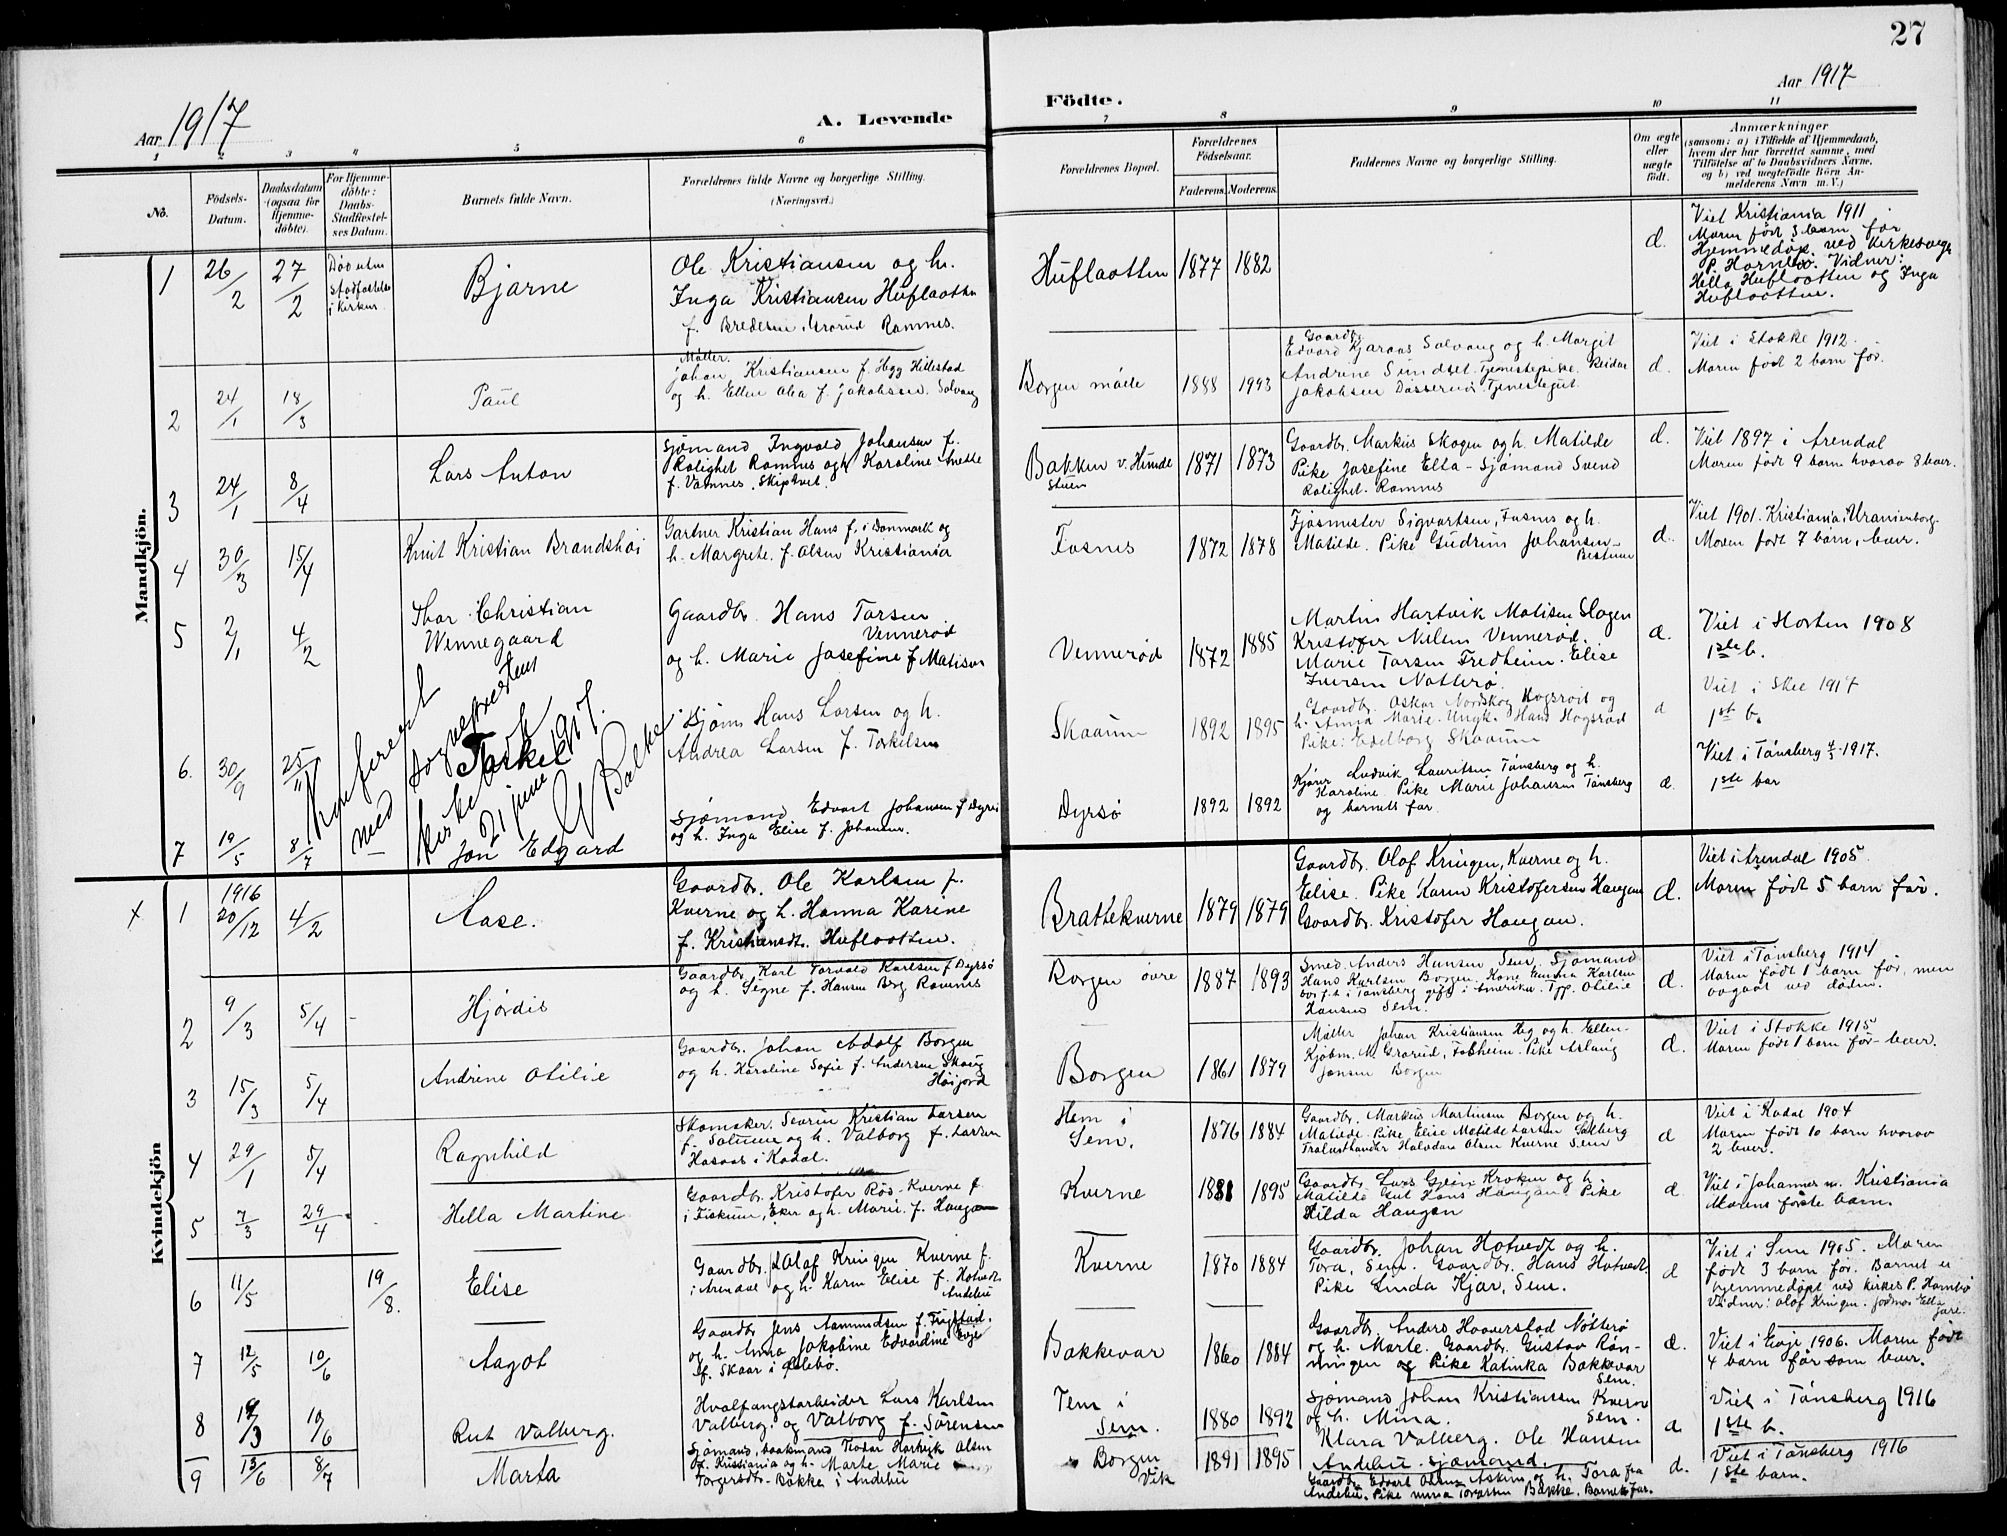 27
Aar 1917
A. Levende
Födte.
Aar 1917
1 2 3 4 5 6 7 8 9 10 11
No.
Födsels-Datum.
Daabsdatum (ogsaa for Hjemme-döbte).
For Hjemme-döbte: Daabs-Stadfæstel-ses Datum.
Barnets fulde Navn.
Forældrenes fulde Navne og borgerlige Stilling.
(Næringsvei.)
Forældrenes Bopæl.
Forældrenes Födselsaar.
Faderens. Moderens.
Faddernes Navne og borgerlige Stilling.
Om ægte eller uægte födt.
Anmærkninger
(saasom: a) i Tilfælde af Hjemmedaab,
hvem der har forrettet samme, med
Tilföielse af to Daabsvidners Navne,
og b) ved uægtefödte Börn An-
melderens Navn m. V.)
Mandkjön.
1 26/2 27/2
i Kirken
Bjarne
Ole Kristiansen og h.
Inga Kristiansen Huflaatten
f. Bredesen Ramnes.
Huflaatten 1877 1882 d.
Viet Kristiania 1911
Moren født 3 barn før
Hjemmedøp. ved Kirkesanger
P. Hornbo. Vidner:
Hella Huflaatten og Inga
Huflaatten.
2 24/1 18/3
Paul
Møller.
Johan Kristiansen f. Hegg Hillestad
og h. Ellen Alea f. Jakobsen. Solvang
Borgen mølle 1888 1993
Gaardbr.
Edvard Kjæraas Solvang og h. Margit
Andrine Sundset. Tjenestepike. Reidar
Jakobsen Tjenestegut.
d.
Viet i Stokke 1912.
Moren født 2 barn før.
3 24/1 8/4
Lars Anton
Sjømand Ingvald Johansen f.
Rolighet Ramnes og h. Karoline Anette
f. Vamnes, Skiptvet.
Bakken v. Himde
stuen
1871 1873
Gaardbr. Markus Skogen og h. Matilde
Pike Josefine Ella - Sjømand Svend
Rolighet. Ramnes
d.
Viet 1897 i Arendal
Moren født 9 barn hvorav 8 lever.
4 30/3 15/4
Knut Kristian Brandshøi
Gartner Kristian Hans f. i Danmark og
h. Margrete f. Olsen Kristiania
Fosnes 1872 1878
Fjøsmester Sigvartsen, Fosnes og h.
Matilde. Pike Gudrun Johansen
d.
Viet 1901. Kristiania, Uranienborg.
Moren født 7 barn, lever.
5 2/1 4/2
Thor Christian
Wennegaard
Gaardbr. Hans Torsen
Vennerød
og h. Marie Josefine f. Matisen
Vennerød 1872 1885
Martin Hartvik Matisen Slagen
Kristofer Nilsen Vennerød.
Marie Torsen Fredheim. Elise
Iversen Nøtterø.
d.
Viet i Horten 1908
1ste b.
6. 30/9 25/11
Torkel
Hans Larsen og h.
Andrea Larsen f. Torkelsen
Skaaum 1892 1895
Gaardbr. Oskar Nordskog Hogsrød og
h. Anna Marie. Ungk. Hans Hogsrød
Pike: Edelborg Skaaum
d
Viet i Skee 1917
1st b.
Konfereret
med
sogneprestens
kirkebok
21 juni 1917.
7 19/5 8/7
Jon Edgard
Sjømand Edvart Johansen f. Dyrsø
og h. Inga Elise f. Johansen.
Dyrsø 1892 1892
Kjører Ludvik Lauritsen Tønsberg og h.
Karoline. Pike Marie Johansen Tønsberg
og barnets far.
d.
Viet i Tønsberg 1917.
1ste bar
Kvindekjön
x
1 1916 20/12 4/2
Aase.
Gaardbr. Ole Karlsen f.
Kverne og h. Hanna Karine
f. Kristiansdt. Huflaatten.
Brattekverne 1879 1879
Gaardbr. Olaf Kringen, Kverne og h.
Elise. Pike Karen Kristofersen Haugan
Gaardbr. Kristofer Haugan.
d.
Viet i Arendal 1905.
Moren født 5 barn før.
2 9/3 5/4
Hjørdis
Gaardbr. Karl Torvald Karlsen f. Dyrsø
og h. Signe f. Hansen Berg Ramnes
Borgen øvre 1887 1893
Smed. Anders Hansen Sem, Sjømand
Hans Karlsen Borgen. Kone Emma Karlsen
i Tønsberg gift i Amerika. Tjp. Otilie
Hansen Sem.
d.
Viet i Tønsberg 1914
Moren født 1 barn før, men
avgaat ved døden.
3 15/3 5/4
Andrine Otilie
Gaardbr. Johan Adolf Borgen
og h. Karoline Sofie f. Andersen Skaug
Høijord
Borgen 1861 1879
Møller Johan Kristiansen Heg og h. Ellen.
Kjøbm. M. Grorud, Fosheim. Pike Aslaug
Jansen Borgen
d.
Viet i Stokke 1915
Moren født 1 barn før - lever.
4 29/1 5/4
Ragnhild
Skomaker Severin Kristian Larsen
f. Solum og h. Valborg f. Larsen
Hasaas i Kodal.
Hem i
Sem.
1876 1884
Gaardbr. Markus Martinsen Borgen og h.
Matilde. Pike Elise Matilde Larsen Solberg
Trælasthandler Halvdan Olsen Kverne Sem
d
Viet i Kodal 1904
Moren født 10 barn hvorav
2 lever.
5 7/3 29/4
Hella Martine
Gaardbr. Kristofer Røs-Kverne f.
i Fiskum, Eker og h. Marie f. Haugan
Kverne 1881 1895
Gaardbr. Lars Gjein Kroken og h.
Matilde Gut Hans Haugan Pike
Hilda Haugan
d
Viet i Johannes m. Kristiania
Morens første barn.
6 11/5 19/8.
Elise
Gaardbr. Olaf Kringen Kverne f.
i Arendal og h. Karen Elise f. Hotvedt
Andebu
Kverne 1870 1884
Gaardbr. Johan Hotvedt og h.
Tora, Sem. Gaardbr. Hans Hotvedt.
Pike Linda Kjær, Sem.
d
Viet i Sem 1905. Moren
født 3 barn før. Barnet er
hjemmedøpt ved Kirkes. P. Hornbo
Vidner: Olaf Kringen. Jodmor Ella
7 12/5 10/6
Aagot
Gaardbr. Jens Aamundsen f.
og h. Anna Jakobine Edvardine
f. Skaar i
Bakkevar 1860 1884
Gaardbr. Anders Haaverstad Nøtterø
og h. Marte. Gaardbr. Gustav Røn-
ningen og Pike Katinka Bakkevar
Sem.
d.
Viet i Evje 1906. Moren født
4 barn før som lever.
8 19/3 10/6
Rut Valberg.
Hvalfangstarbeider Lars Karlsen
Valberg. og Valborg f. Sørensen
Jem i
Sem.
1880 1892
Sjømand Johan Kristiansen Kverne
og h. Mina. Sem.
Klara Valberg. Ole Hansen
Andebu. sjømand.
d
Viet i Tønsberg 1916
1ste b.
9 13/6 8/7
Marta
Sjømand, baatsmand Teodor Hartvik Olsen
f. Kristiania og h. Marte Marie
Torgersdt. Bakke i Andebu
Borgen
Vik
1891 1895
Gaardbr. Edvart Olsen Askim og h. Tora fra
Andebu. Pike Mina Torgersen Bakke. Barnets far.
d.
Viet i Tønsberg 1916
1ste barn.